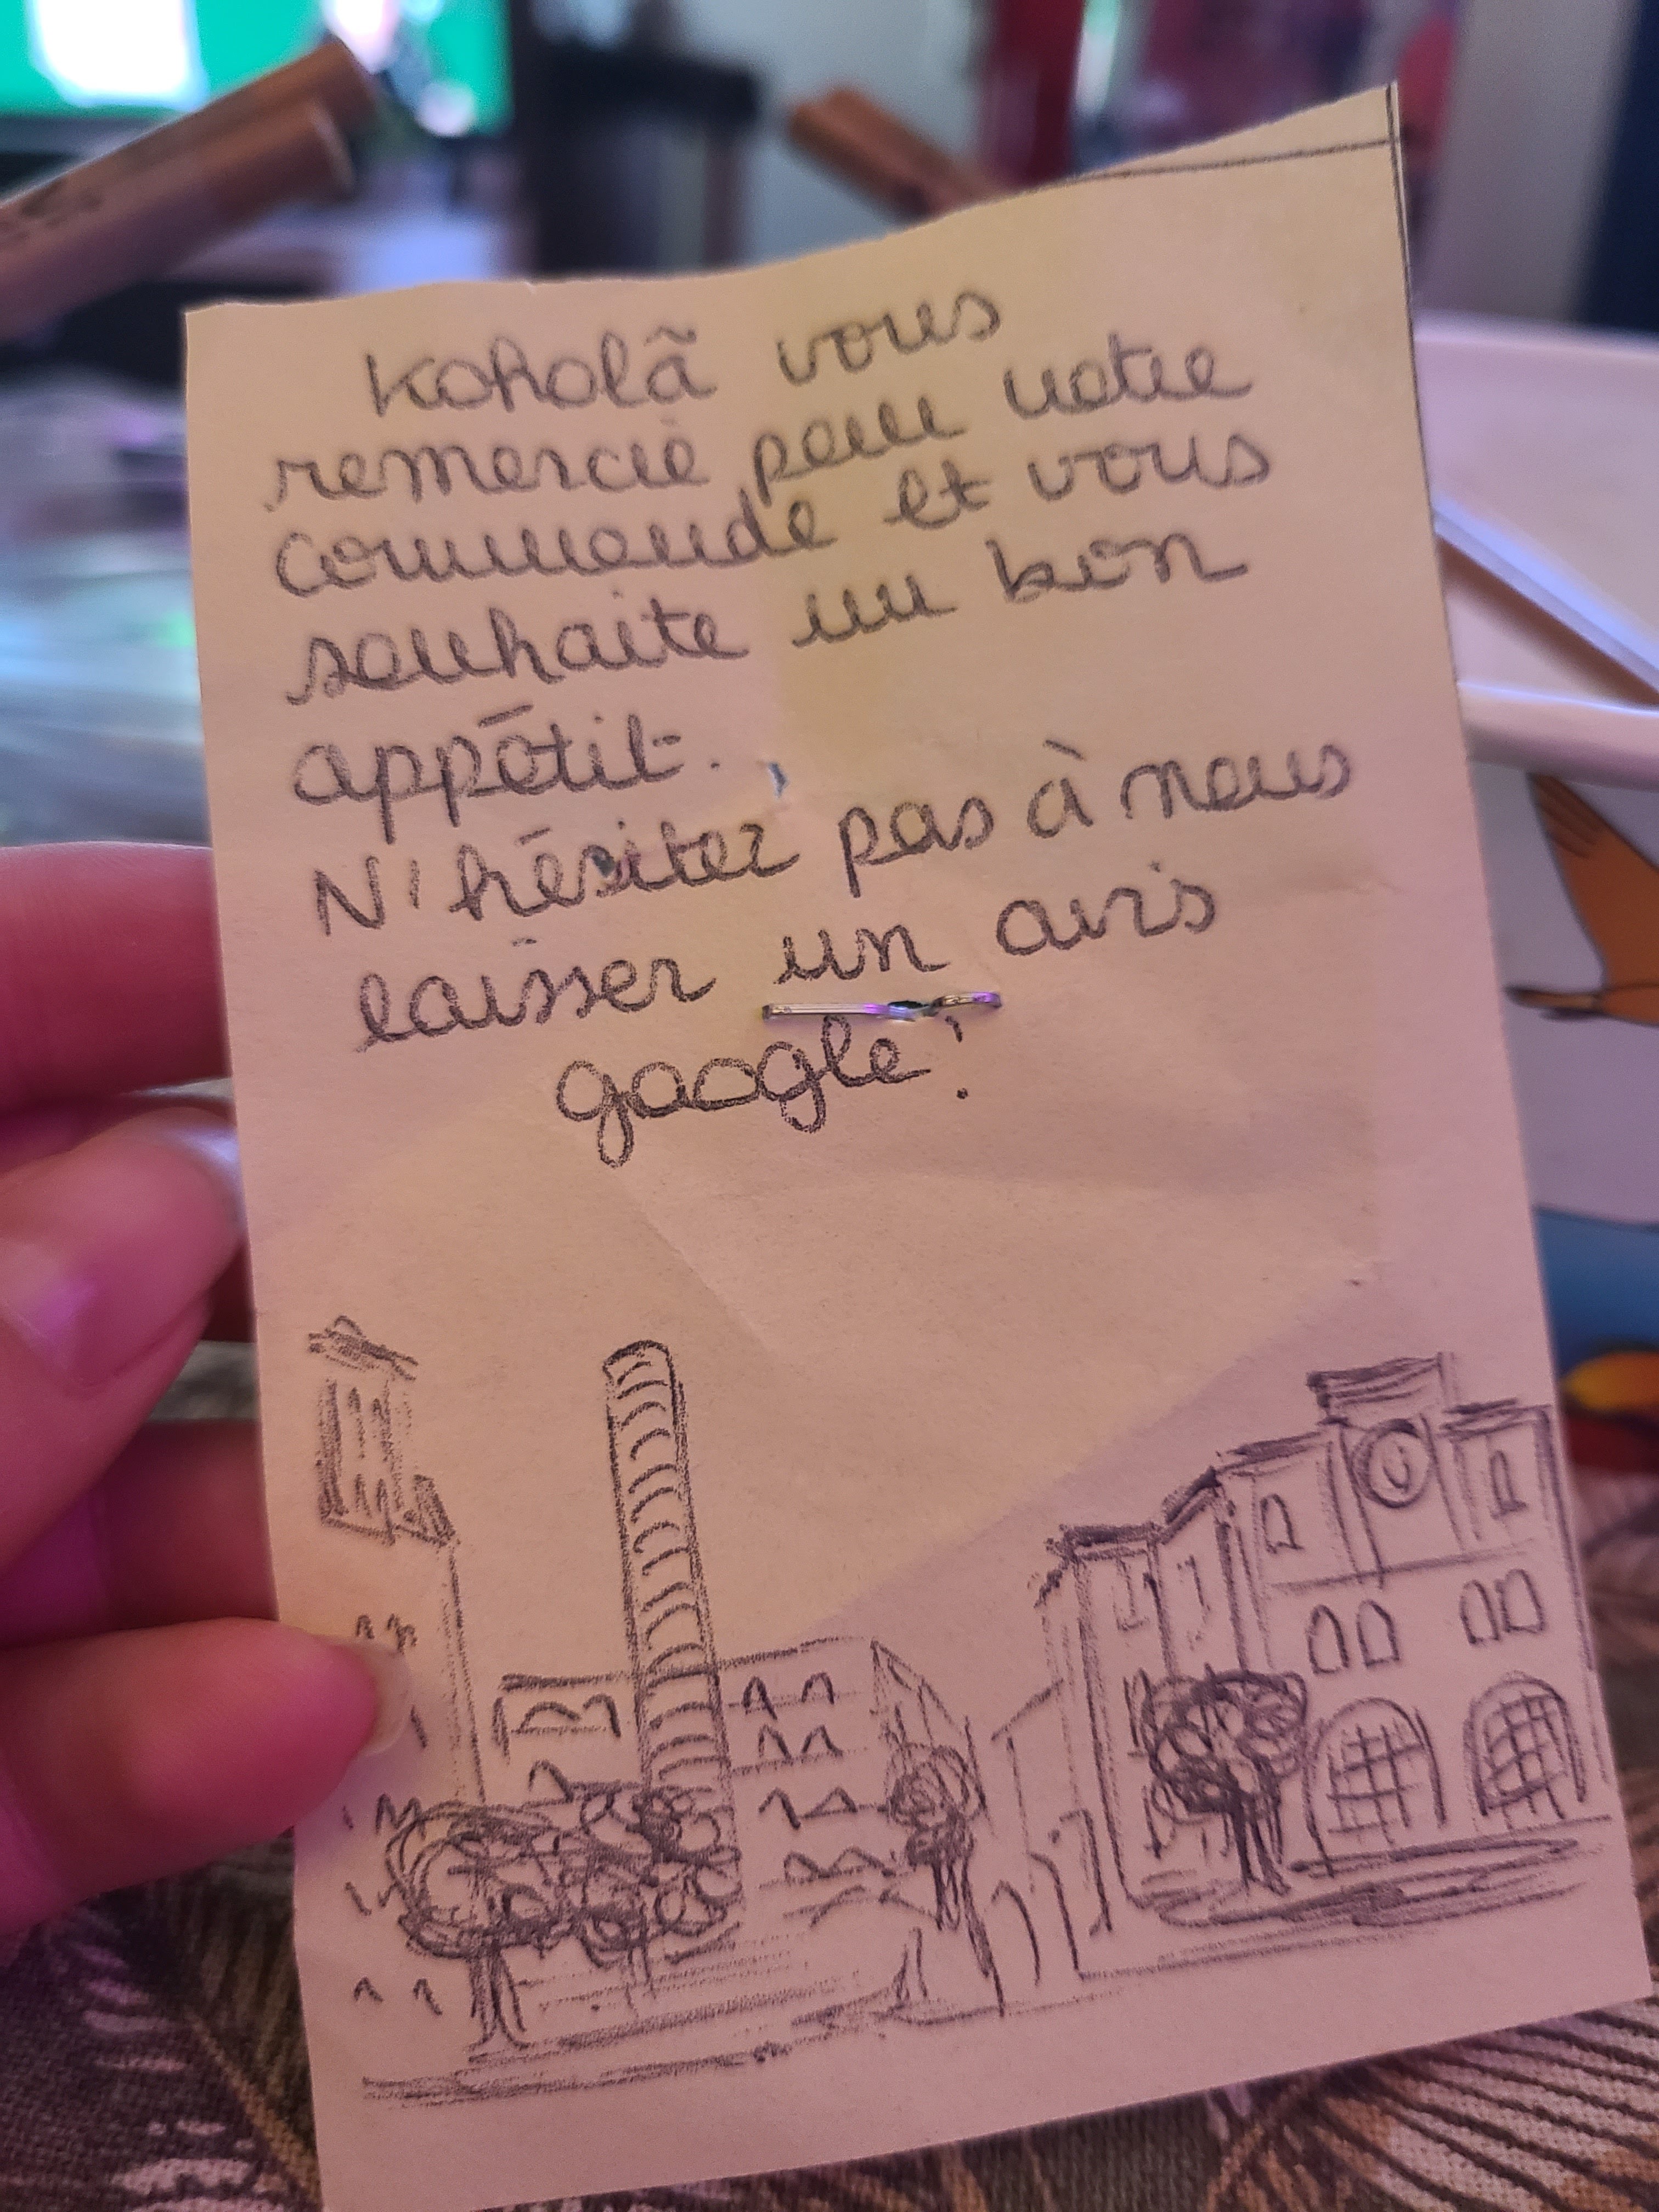 Koholã vous
remercie pour votre
commande et vous
souhaite un bon
appétit.
N'hésitez pas à nous
laisser un avis
google!